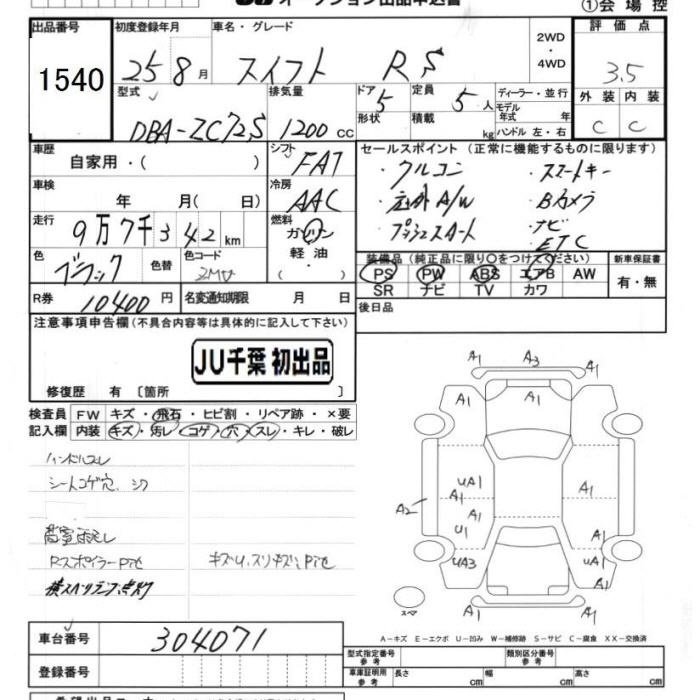 オークション出品申込書
①会場控
出品番号 1540
初度登録年月 25 8月
車名・グレード スイフト RS
2WD・4WD
評価点 3.5
外装 C 内装 C
型式 DBA-ZC72S
排気量 1200 cc
ドア 5 形状
定員 5人 積載 kg
ディーラー・並行
モデル年式 年式
ハンドル 左・右
車歴 自家用・( )
シフト FAT
車検 年 月( 日)
冷房 AAC
走行 9万7千342km
燃料 ガソリン 軽油・
色 ブラック 色替 色コード ZMV
R券 10400円 名変通知期限 月 日
セールスポイント(正常に機能するものに限ります)
・クルコン ・スマートキー
・A/W ・Bカメラ
・プッシュスタート ・ナビ
・ETC
装備品(純正品に限り○をつけてください) 新車保証書
PS PW ABS エアB AW 有・無
SR ナビ TV カワ
後日品
注意事項申告欄(不具合内容等は具体的に記入して下さい)
JU千葉 初出品
修復歴 有 〔箇所 〕
検査員 FW キズ・飛石・ヒビ割・リペア跡・×要
記入欄 内装 キズ・汚レ・コゲ・穴・スレ・キレ・破レ
ハンドルスレ
シートコゲ穴、シワ
Rスポイラー
A1 A3 A1
A1 A1 A1
UA1 A1 A1
A2 A1
U1 UA1
UA3 A1 UA1
A1 A1
スペア
A-キズ E-エクボ U-凹み W-補修跡 S-サビ C-腐食 XX-交換済
車台番号 304071
型式指定番号 参考 類別区分番号 参考
登録番号
車庫証明用 参考 長さ cm 幅 cm 高さ cm